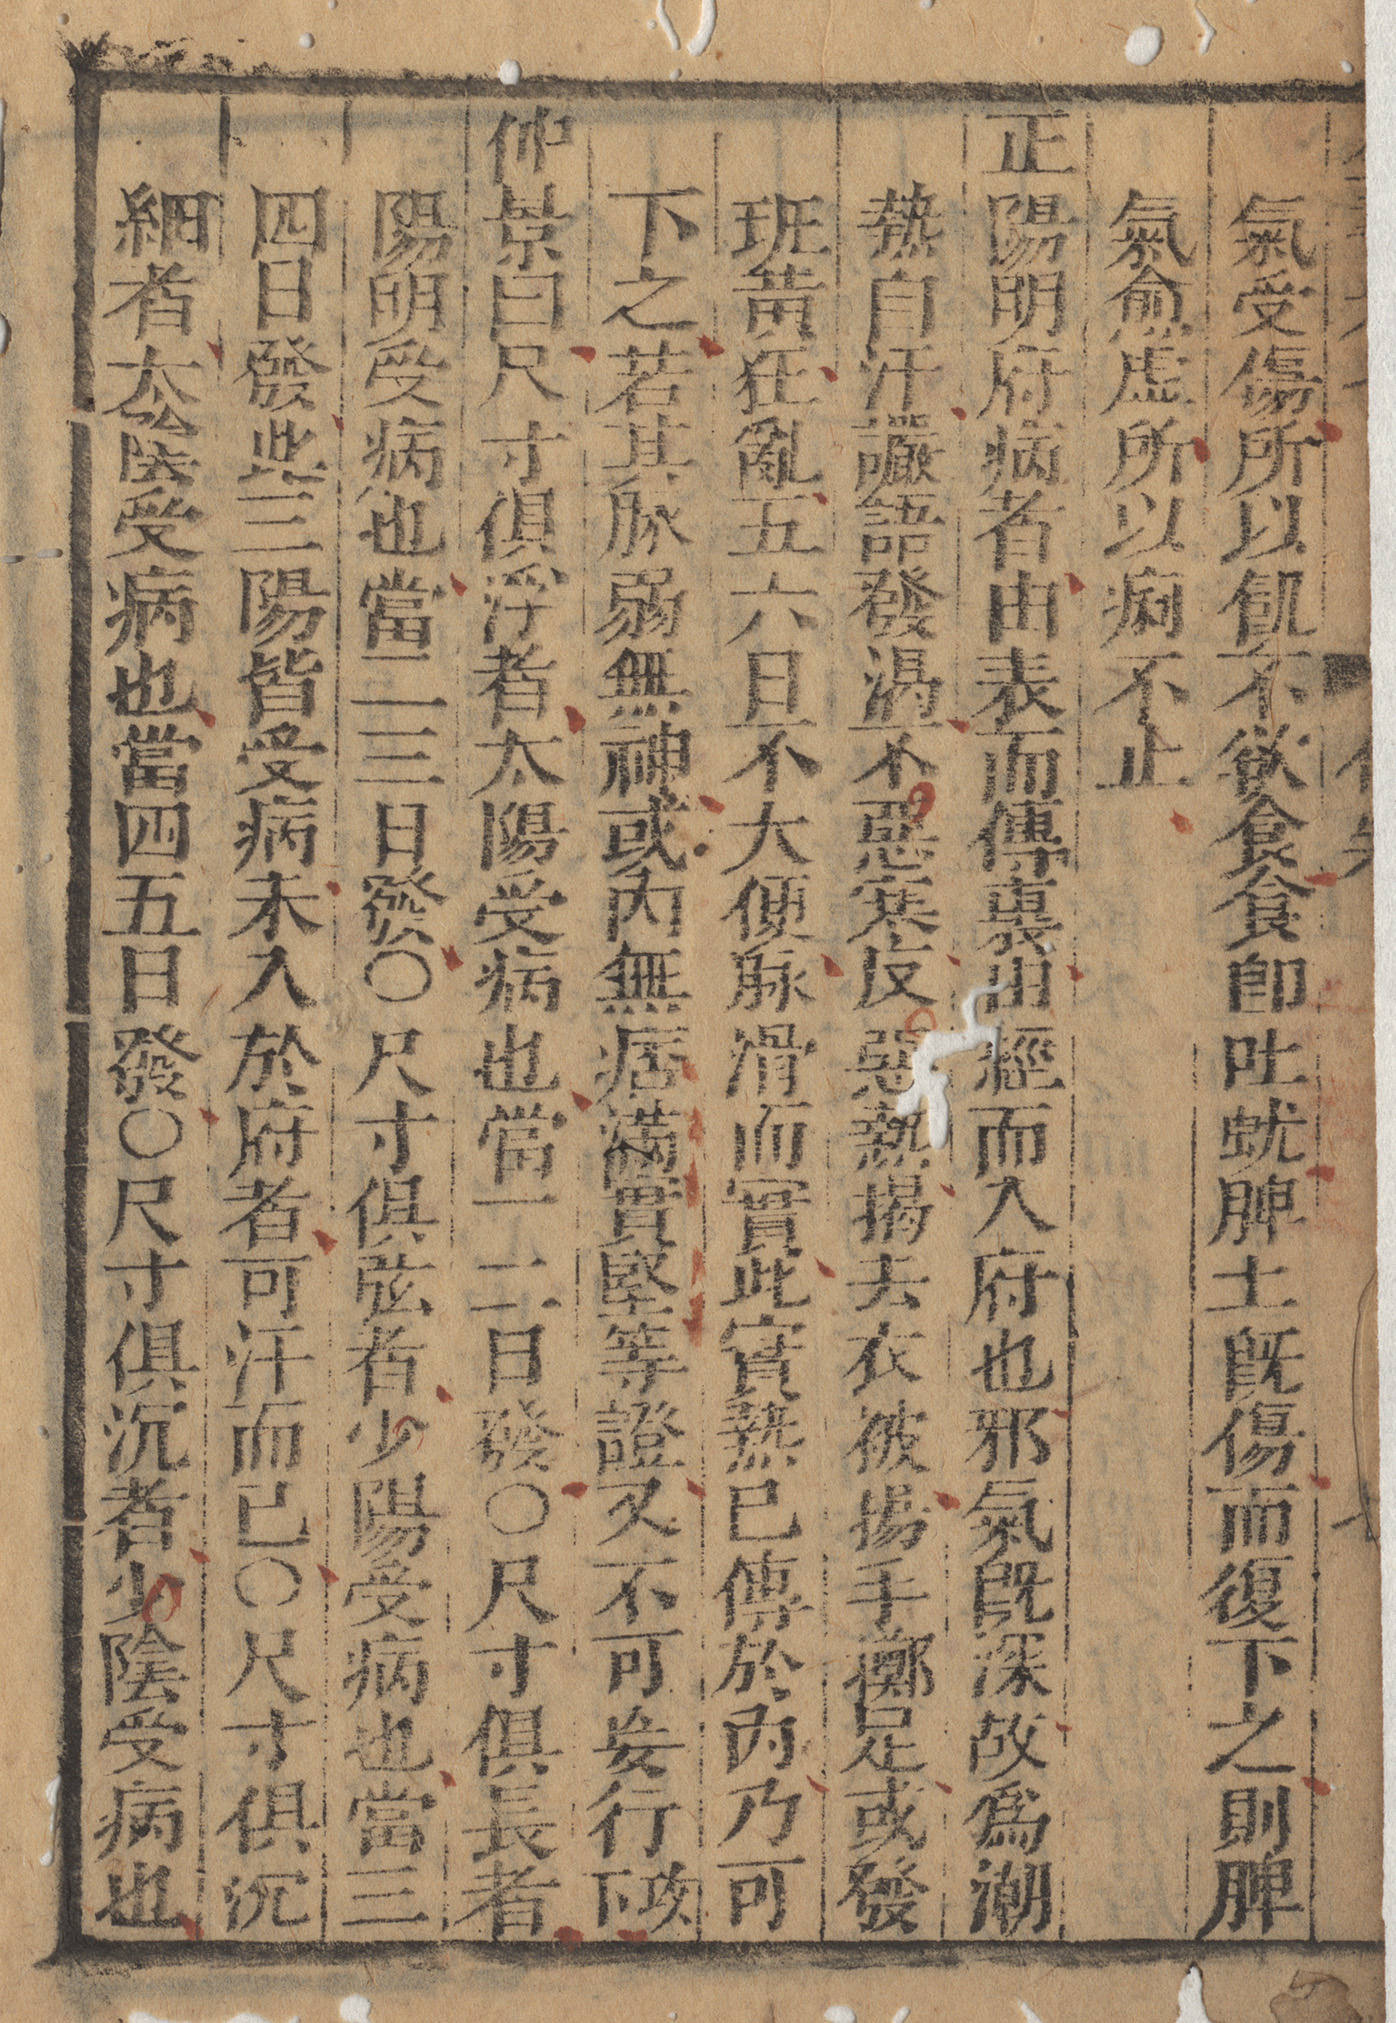 氣受傷所以飢不欲食食卽吐蚘脾土旣傷而復下之則脾
氣愈虛所以痢不止
正陽明府病者由表而傳裏由經而入府也邪氣旣深故爲潮
熱自汗讝語發渴不惡寒反惡熱揭去衣被揚手擲足或發
班黃狂亂五六日不大便脉滑而實此實熱已傳於內乃可
下之若其脉弱無神或內無痞滿實堅等證又不可妄行攻下
仲景曰尺寸俱浮者太陽受病也當一二日發〇尺寸俱長者
陽明受病也當二三日發〇尺寸俱弦者少陽受病也當三
四日發此三陽皆受病未入於府者可汗而已〇尺寸俱沉
細者太陰受病也當四五日發〇尺寸俱沉者少陰受病也